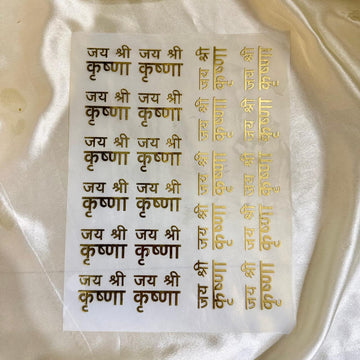 जय श्री जय श्री
कृष्णा कृष्णा
जय श्री जय श्री
कृष्णा कृष्णा
जय श्री जय श्री
कृष्णा कृष्णा
जय श्री जय श्री
कृष्णा कृष्णा
जय श्री जय श्री
कृष्णा कृष्णा
जय श्री जय श्री
कृष्णा कृष्णा
जय श्री जय श्री जय श्री जय श्री जय श्री
कृष्णा कृष्णा कृष्णा कृष्णा कृष्णा
जय श्री जय श्री जय श्री जय श्री जय श्री
कृष्णा कृष्णा कृष्णा कृष्णा कृष्णा